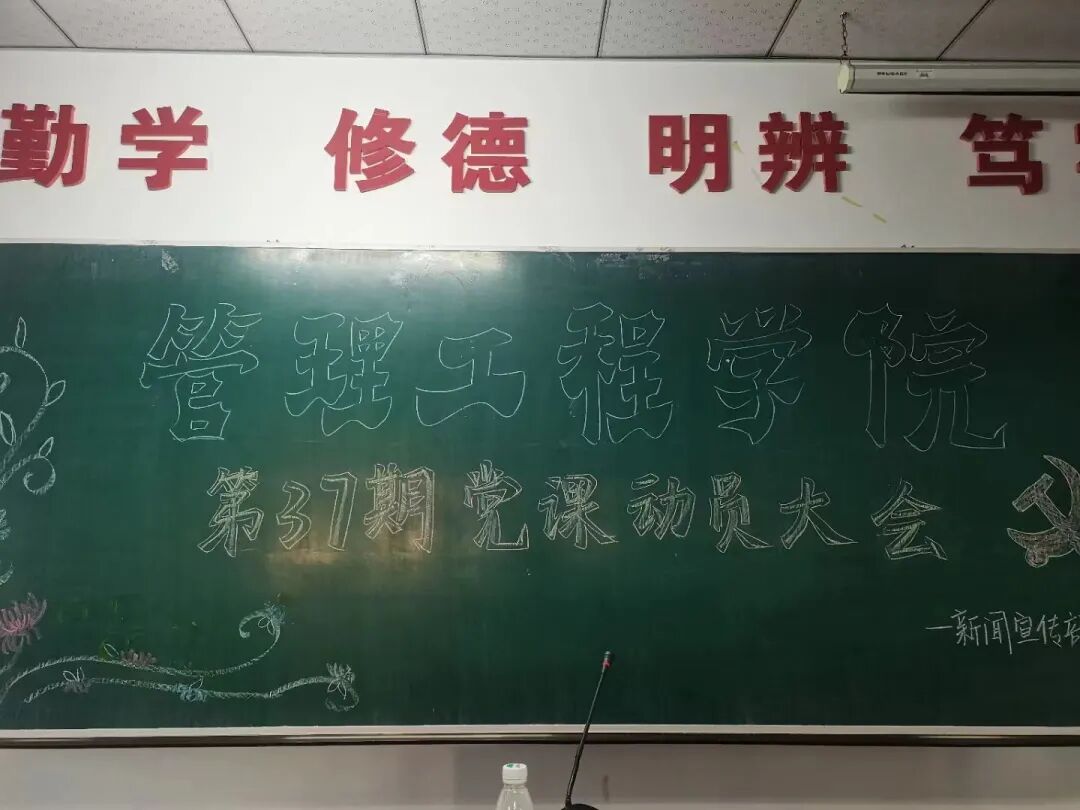 勤学 修德 明辨 笃
管理工程学院
第37期党课动员大会
—新闻宣传部